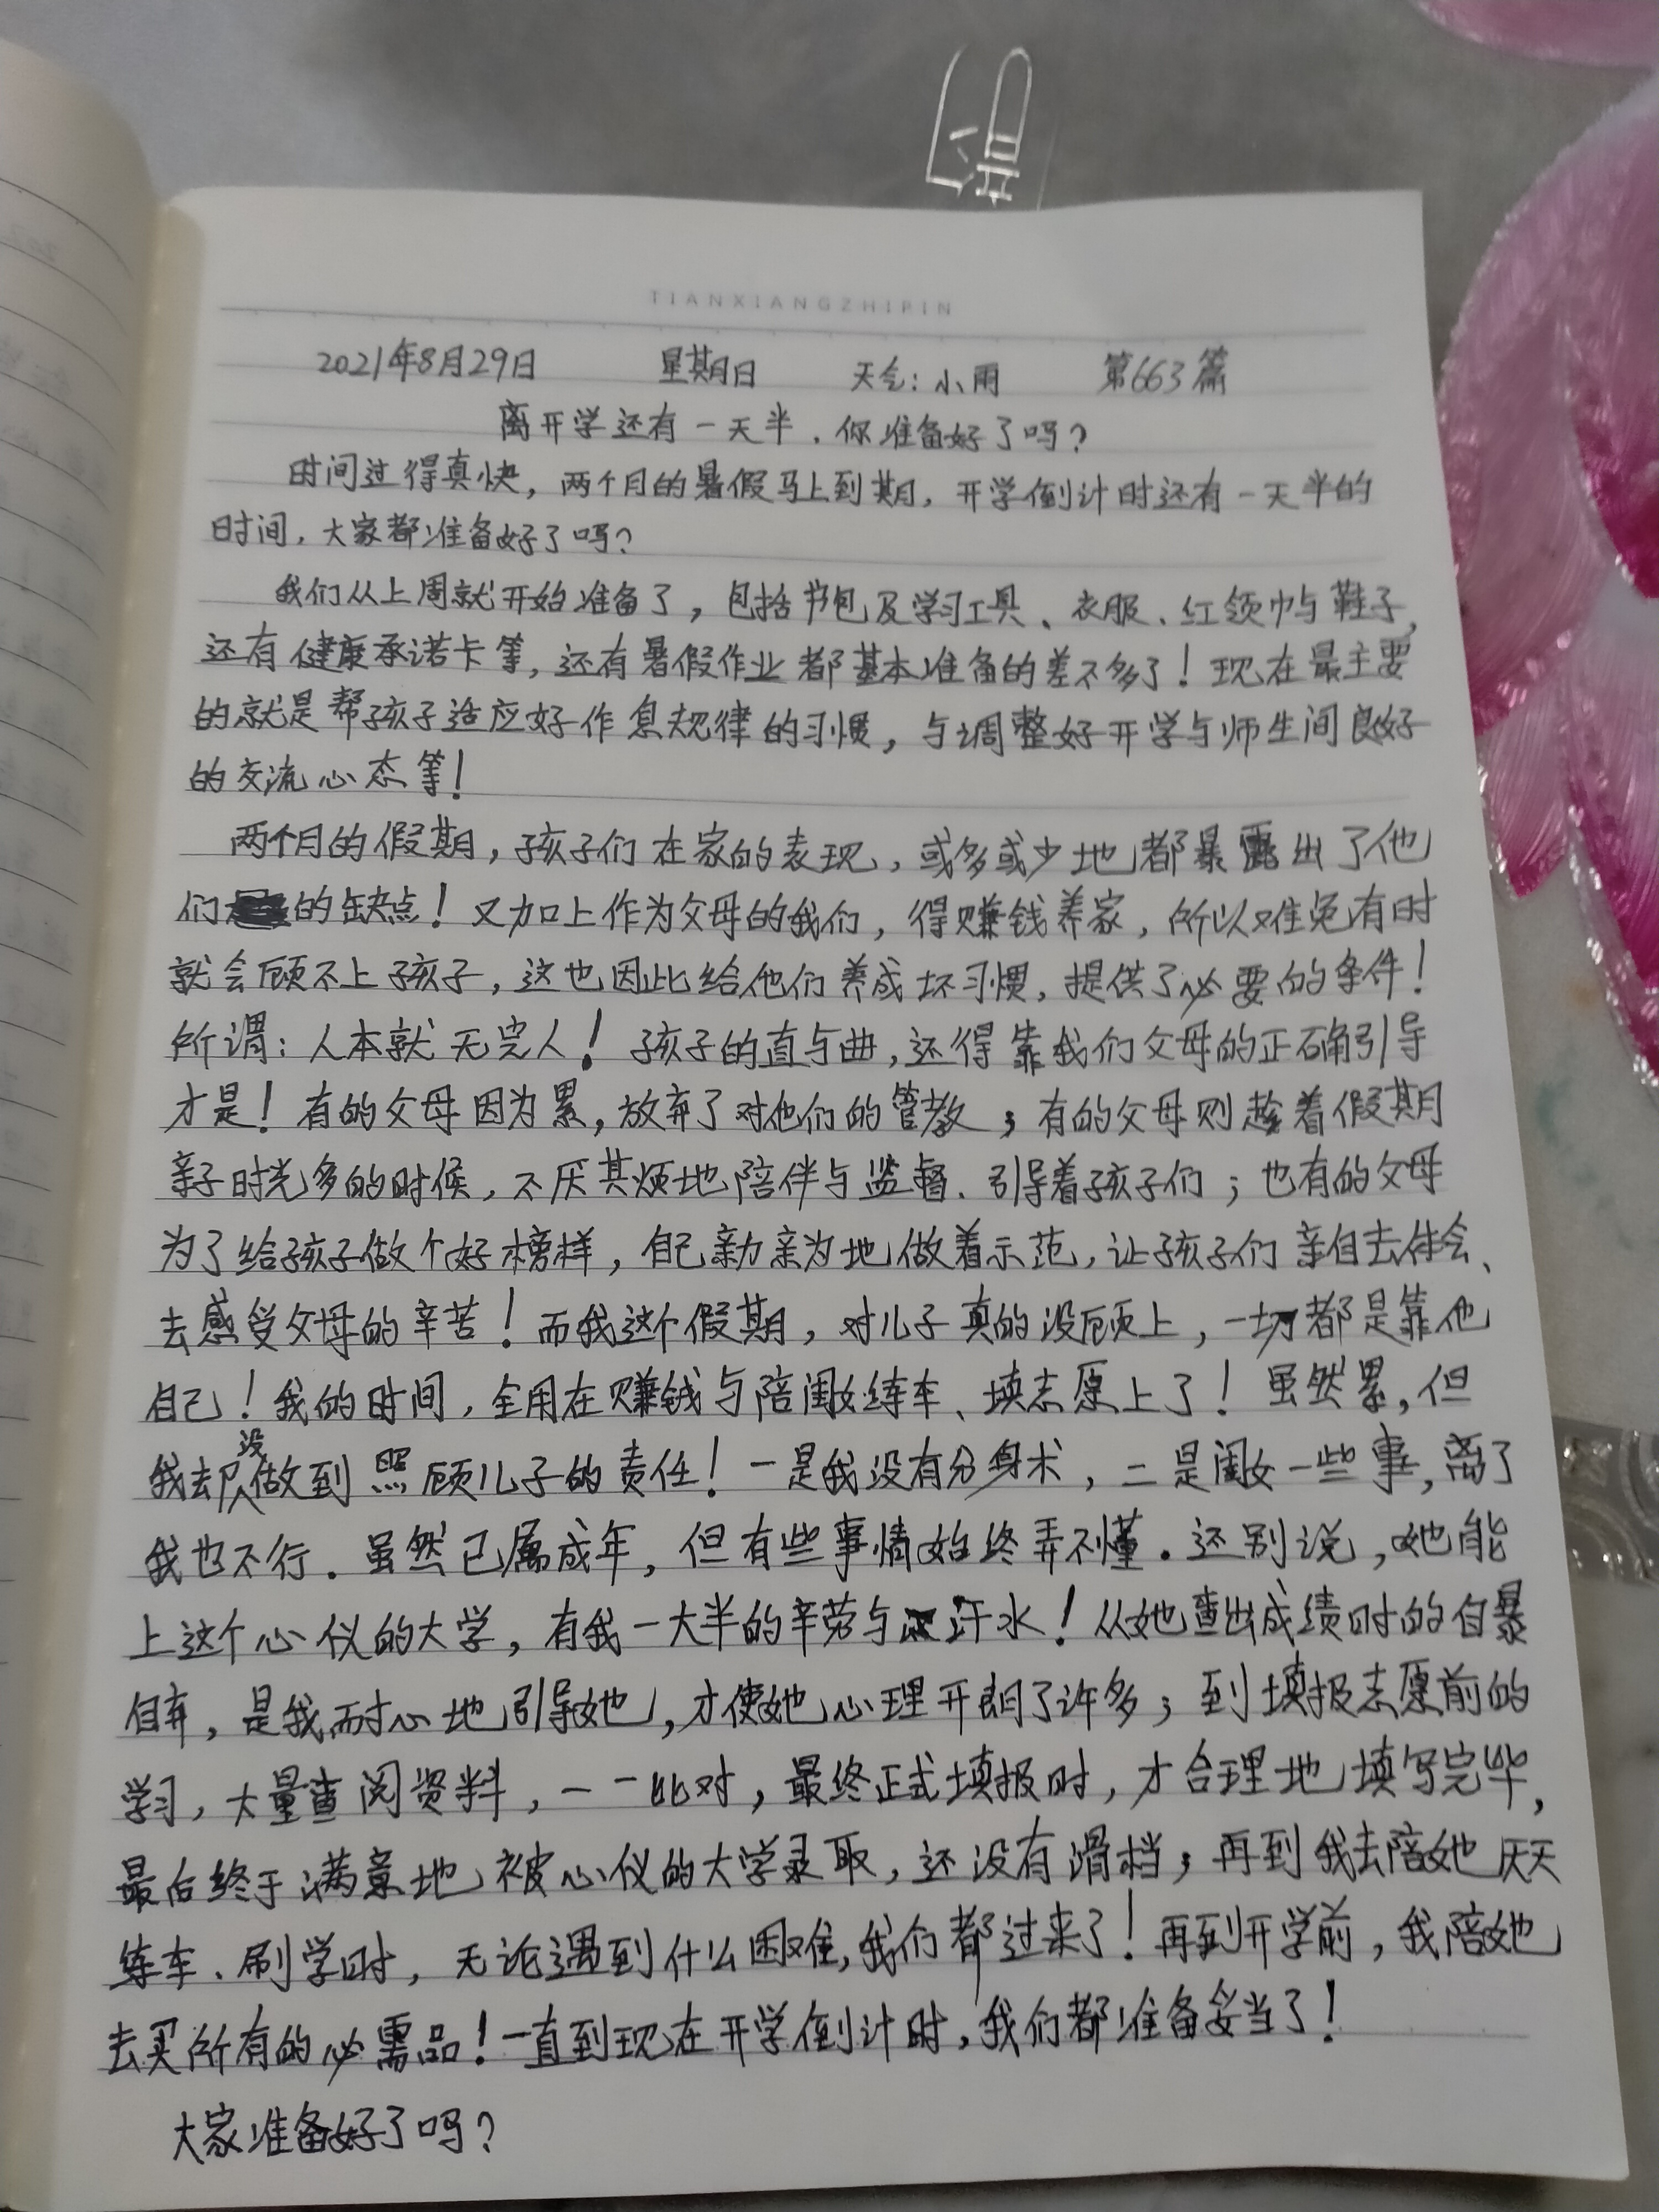 TIANXIANGZHIPIN
2021年8月29日 星期日 天气:小雨 第663篇
离开学还有一天半,你准备好了吗?
时间过得真快,两个月的暑假马上到期,开学倒计时还有一天半的
时间,大家都准备好了吗?
我们从上周就开始准备了,包括书包及学习工具、衣服、红领巾与鞋子,
还有健康承诺卡等,还有暑假作业都基本准备的差不多了!现在最主要
的就是帮孩子适应好作息规律的习惯,与调整好开学与师生间良好
的交流心态等!
两个月的假期,孩子们在家的表现,或多或少地都暴露出了他
们的缺点!又加上作为父母的我们,得赚钱养家,所以难免有时
就会顾不上孩子,这也因此给他们养成坏习惯,提供了必要的条件!
所谓:人本就无完人!孩子的直与曲,还得靠我们父母的正确引导
才是!有的父母因为累,放弃了对他们的管教;有的父母则趁着假期
亲子时光多的时候,不厌其烦地陪伴与监督、引导着孩子们;也有的父母
为了给孩子做个好榜样,自己亲力亲为地做着示范,让孩子们亲自去体会、
去感受父母的辛苦!而我这个假期,对儿子真的没顾上,一切都是靠他
自己!我的时间,全用在赚钱与陪闺女练车、填志愿上了!虽然累,但
我却没做到照顾儿子的责任!一是我没有分身术,二是闺女一些事,离了
我也不行.虽然已属成年,但有些事情始终弄不懂.还别说,她能
上这个心仪的大学,有我一大半的辛劳与汗水!从她查出成绩时的自暴
自弃,是我耐心地引导她,才使她心理开朗了许多;到填报志愿前的
学习,大量查阅资料,一一比对,最终正式填报时,才合理地填写完毕,
最后终于满意地被心仪的大学录取,还没有滑档;再到我去陪她天天
练车、刷学时,无论遇到什么困难,我们都过来了!再到开学前,我陪她
去买所有的必需品!一直到现在开学倒计时,我们都准备妥当了!
大家准备好了吗?